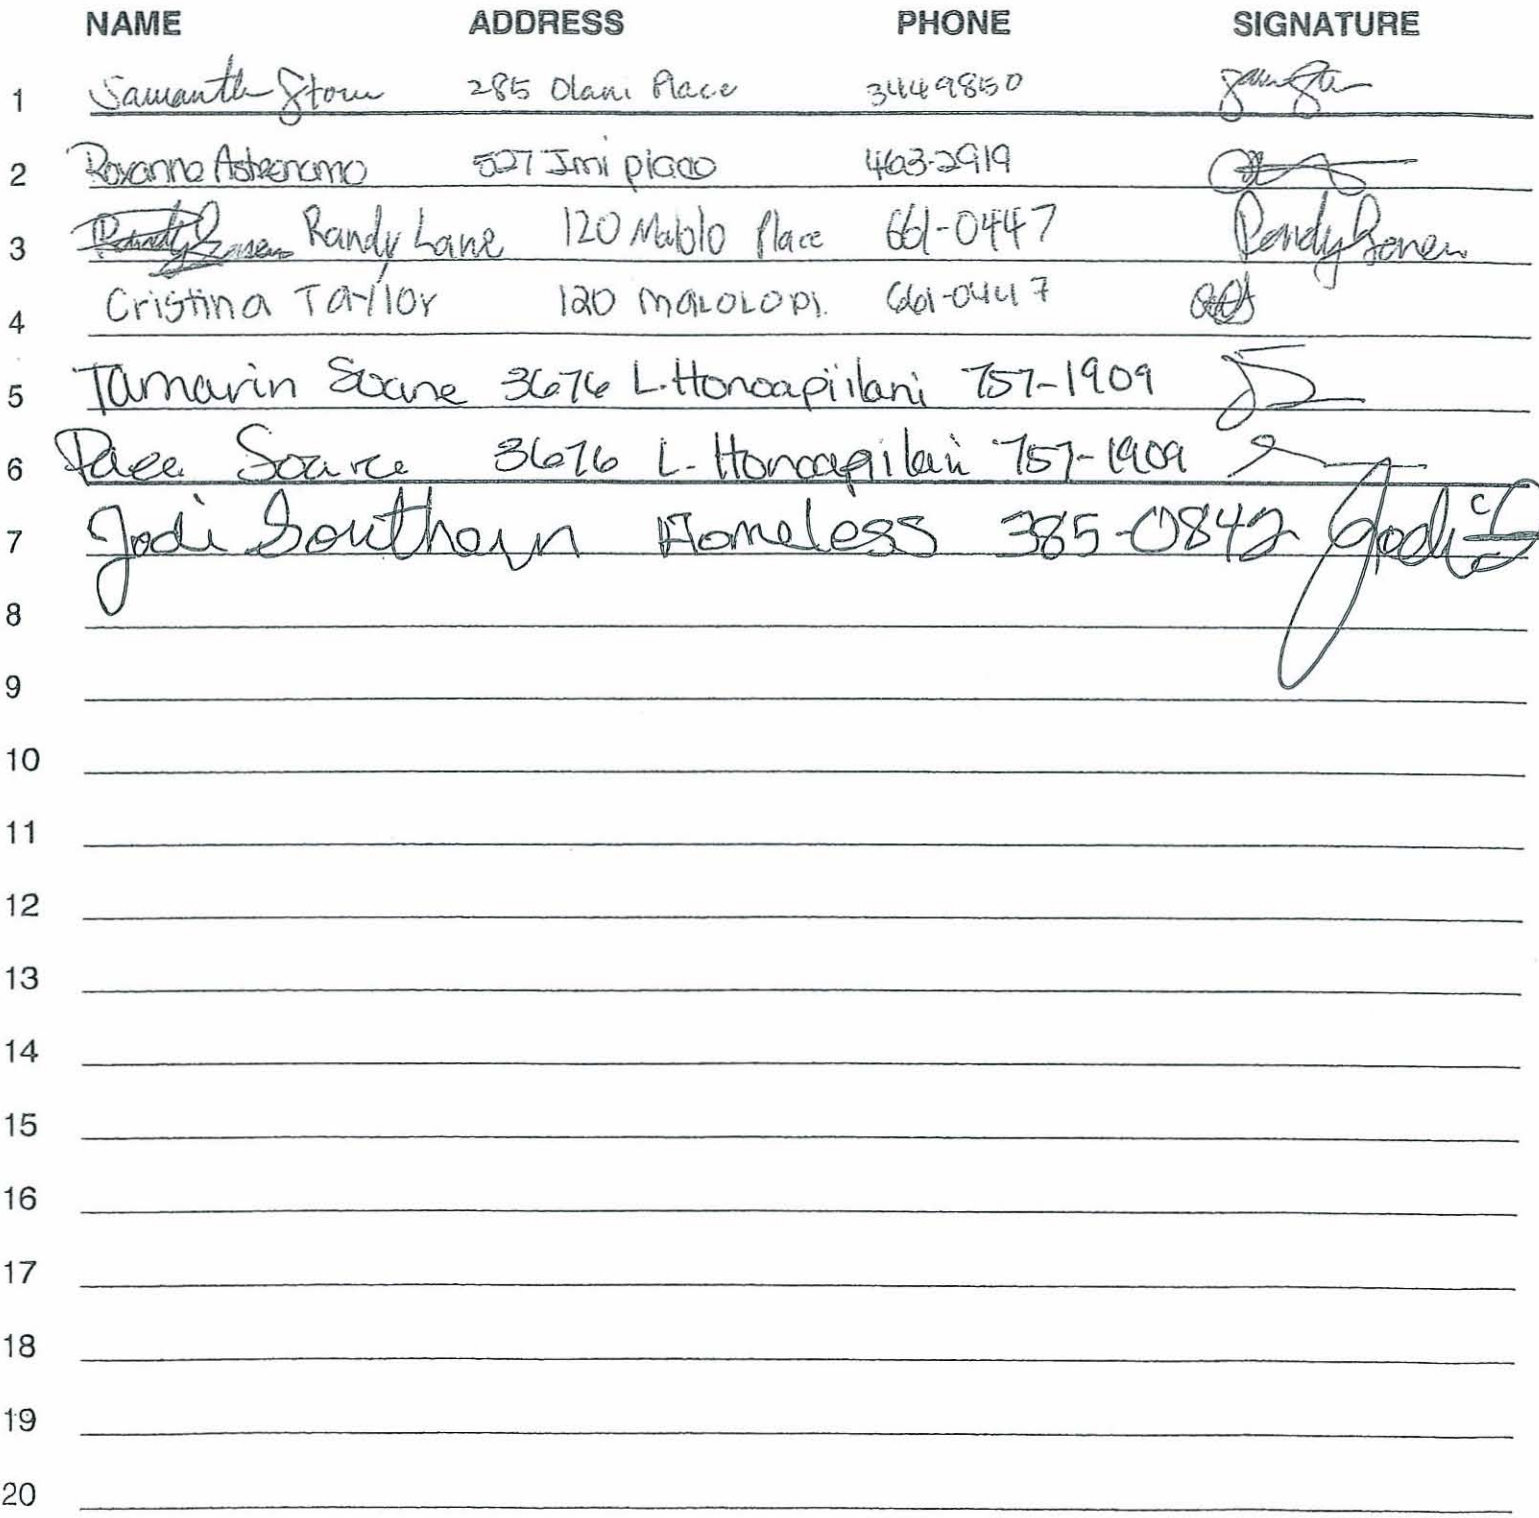 NAME ADDRESS PHONE SIGNATURE
1 Samantha Stone 285 Olani Place 3449850
2 Roxanne 527 Imi place 463-2919
3 Randy Lane 120 Malolo Place 661-0447 Randy
4 Cristina Taylor 120 MALOLO Pl. 661-0447
5 Tamarin 3676 L. Honoapiilani 757-1909
6 3676 L. Honoapiilani 757-1909
7 Jodi Southern Homeless 385-0842 Jodi
8
9
10
11
12
13
14
15
16
17
18
19
20